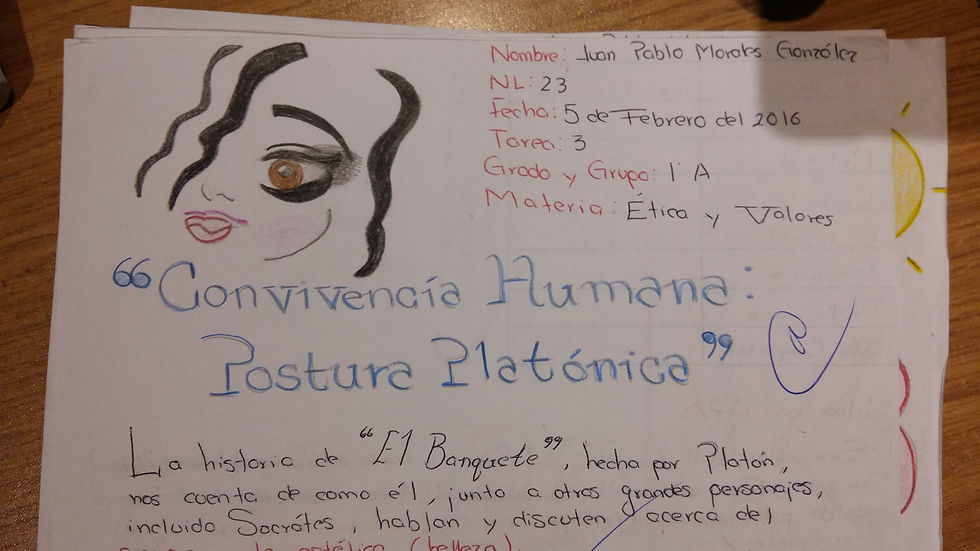 Nombre: Juan Pablo Morales González
NL: 23
Fecha: 5 de Febrero del 2016
Tarea: 3
Grado y Grupo: 1° A
Materia: Ética y Valores
“Convivencia Humana:
Postura Platónica”
La historia de “El Banquete”, hecha por Platón,
nos cuenta de como él, junto a otros grandes personajes,
incluido Socrátes, hablan y discuten acerca del
la estética (belleza)